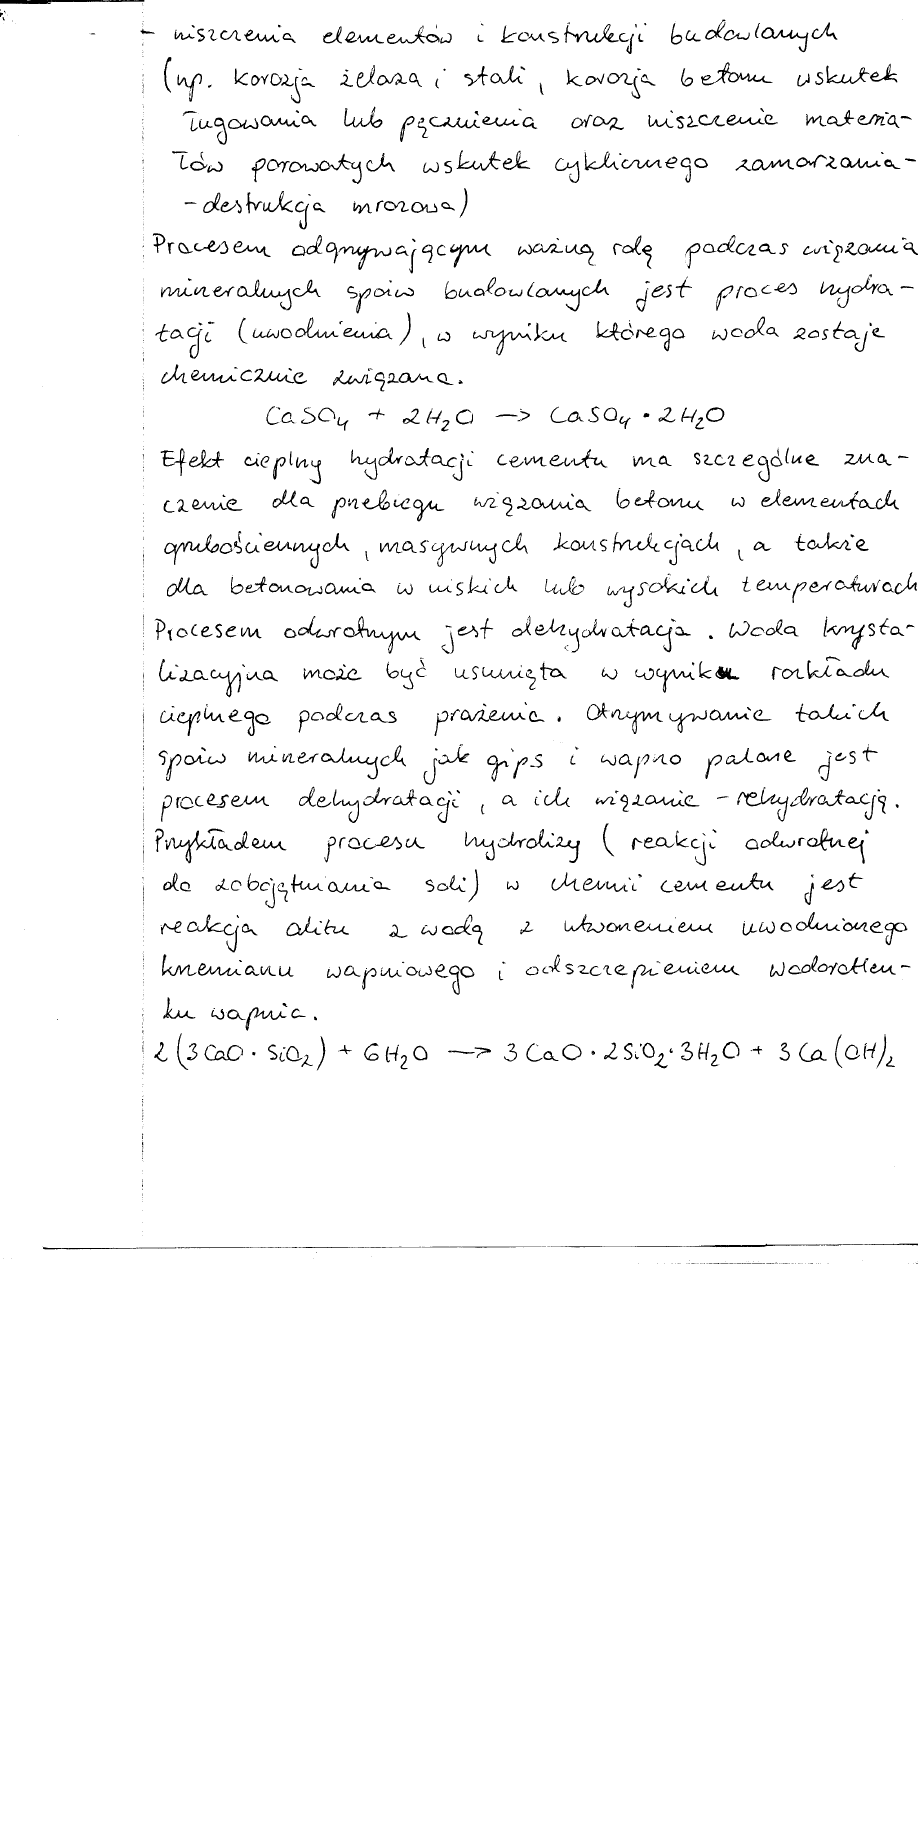 - niszczenia elementów i konstrukcji budowlanych
(np. korozja żelaza i stali, korozja betonu wskutek
ługowania lub pęcznienia oraz niszczenie materia-
łów porowatych wskutek cyklicznego zamarzania-
-destrukcja mrozowa)
Procesem odgrywającym ważną rolę podczas wiązania
mineralnych spoiw budowlanych jest proces hydra-
tacji (uwodnienia), w wyniku którego woda zostaje
chemicznie związana.
CaSO₄ + 2H₂O → CaSO₄ · 2H₂O
Efekt cieplny hydratacji cementu ma szczególne zna-
czenie dla przebiegu wiązania betonu w elementach
grubościennych, masywnych konstrukcjach, a także
dla betonowania w niskich lub wysokich temperaturach
Procesem odwrotnym jest dehydratacja. Woda krysta-
lizacyjna może być usunięta w wyniku rozkładu
cieplnego podczas prażenia. Otrzymywanie takich
spoiw mineralnych jak gips i wapno palone jest
procesem dehydratacji, a ich wiązanie - rehydratacją.
Przykładem procesu hydrolizy (reakcji odwrotnej
do zobojętniania soli) w chemii cementu jest
reakcja alitu z wodą z utworzeniem uwodnionego
krzemianu wapniowego i odszczepieniem wodorotlen-
ku wapnia.
2(3CaO · SiO₂) + 6H₂O → 3CaO · 2SiO₂ · 3H₂O + 3Ca(OH)₂